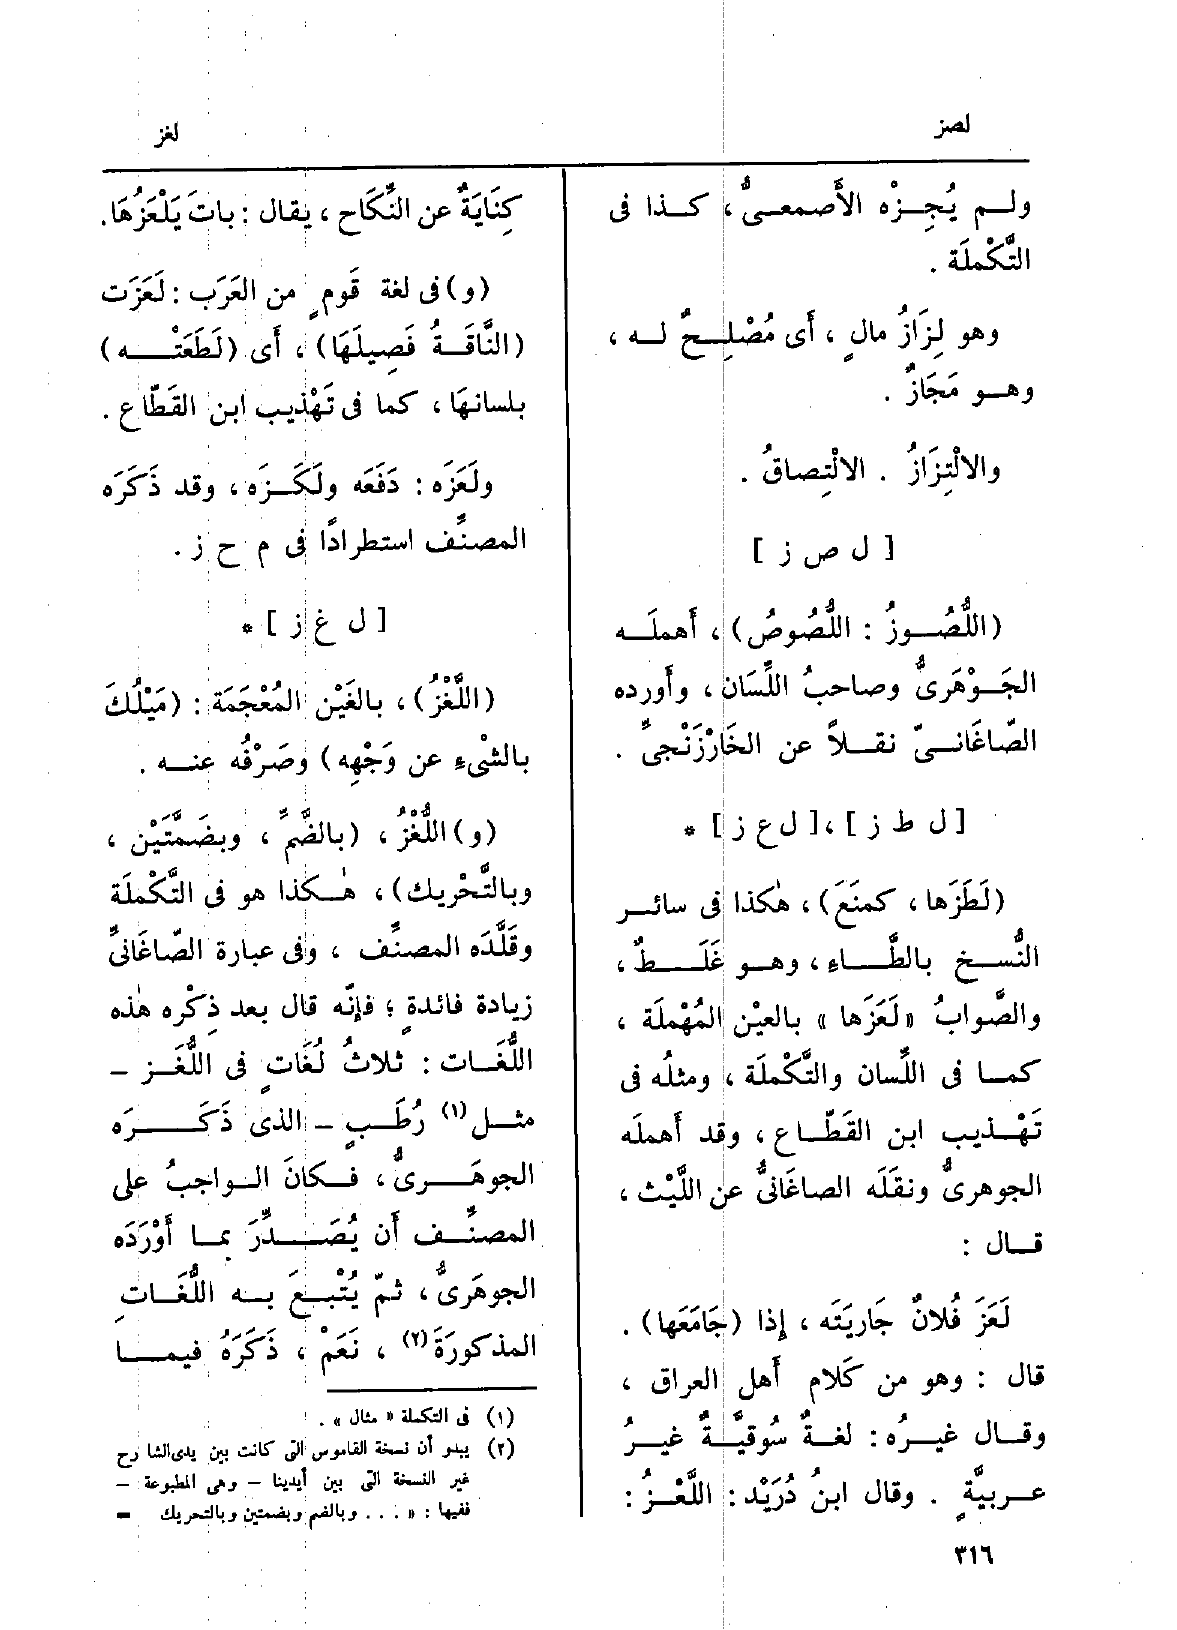 لصز
لغز
ولم يُجِزْه الأَصمعىُّ، كذا فى
التَّكْمِلَة .
وهو لِزَازُ مالٍ ، أَى مُصْلِحٌ له ،
وهو مَجَازٌ .
والالْتِزَازُ . الالْتِصاقُ .
[ ل ص ز ]
(اللُّصُوزُ : اللُّصُوصُ) ، أَهملَه
الجَوْهَرىُّ وصاحبُ اللِّسَان ، وأَورده
الصّاغَانىّ نقلاً عن الخَارْزَنْجىِّ .
[ ل ط ز ] ، [ ل ع ز ] *
(لَطَزَها ، كمنَعَ) ، هٰكذا فى سائر
النُّسخ بالطَّاءِ ، وهو غَلَطٌ ،
والصَّوابُ «لَعَزَها» بالعيْن المُهْملَة ،
كما فى اللِّسان والتَّكْملَة ، ومثلُه فى
تَهْذيب ابن القَطّاع ، وقد أَهملَه
الجوهرىُّ ونقلَه الصاغَانىُّ عن اللَّيْث ،
قال :
لَعَزَ فُلانٌ جاريَتَه ، إِذا (جَامَعَها) .
قال : وهو من كَلام أَهل العراق ،
وقال غيرُه : لغةٌ سُوقيَّةٌ غيرُ
عربيَّةٍ . وقال ابنُ دُرَيْد : اللَّعْزُ :
كِنَايَةٌ عن النِّكَاح ، يقال : باتَ يَلْعَزُهَا.
(و) فى لغة قَومٍ من العَرَب : لَعَزَت
(النَّاقَةُ فَصِيلَهَا) ، أَى (لَطَعَتْه)
بلسانهَا ، كما فى تَهْذيب ابن القَطّاع .
ولَعَزَه : دَفَعَه ولَكَزَه ، وقد ذَكَرَه
المصنِّف استطرادًا فى م ح ز .
[ ل غ ز ] *
(اللَّغْزُ) ، بالغَيْن المُعْجَمَة : (مَيْلُكَ
بالشْىءِ عن وَجْهِه) وصَرْفُه عنه .
(و) اللُّغْزُ ، (بالضَّمِّ ، وبضَمَّتَيْن ،
وبالتَّحْريك) ، هٰكذا هو فى التَّكْملَة
وقَلَّدَه المصنِّف ، وفى عبارة الصّاغَانىِّ
زيادة فائدةٍ ؛ فإِنّه قال بعد ذِكْره هٰذه
اللُّغَات : ثلاثُ لُغَاتٍ فى اللُّغَز –
مثل(١) رُطَبٍ – الذى ذَكَرَه
الجوهَرىُّ ، فكانَ الواجبُ على
المصنِّف أَن يُصَدِّرَ بما أَوْرَدَه
الجوهَرىُّ ، ثمّ يُتْبعَ به اللُّغَاتِ
المذكورَةَ(٢) ، نَعَمْ ، ذَكَرَهُ فيما
(١) فى التكملة « مثال » .
(٢) يبدو أن نسخة القاموس التى كانت بين يدى الشارح
غير النسخة التى بين أيدينا – وهى المطبوعة –
ففيها : « ... وبالضم وبضمتين وبالتحريك =
٣١٦